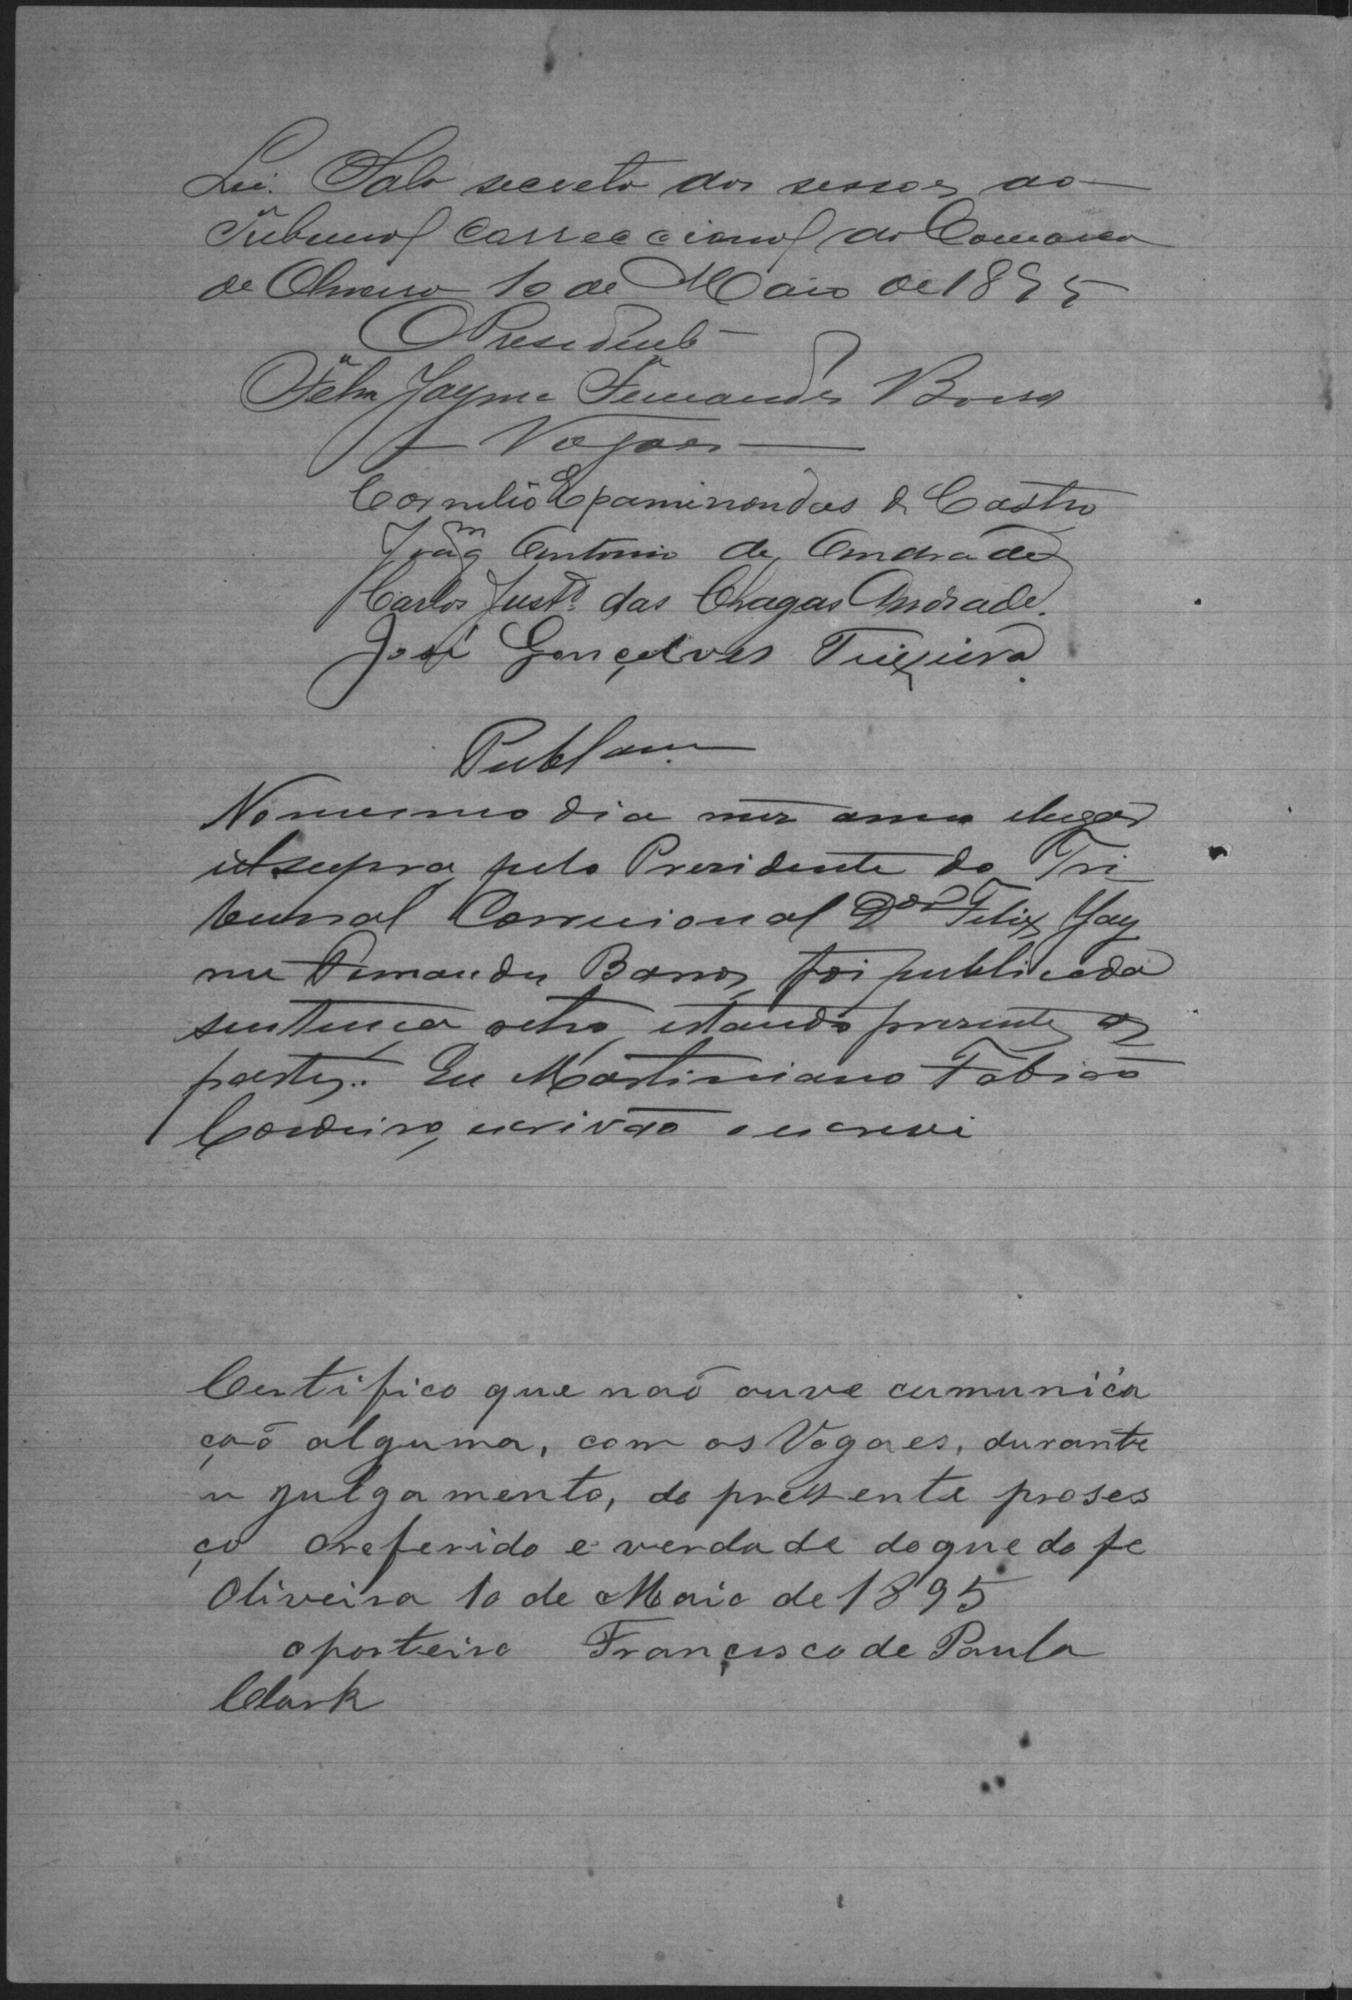 Lei. Sala secreta das sessoes do
Tribunal Correccional da Comarca
de Oliveira 10 de Maio de 1895
O Presidente
Felix Jayme Fernandes Barros
Vogaes
Cornelio Epaminondas de Castro
Joaqm Antonio de Andrade
Carlos Justo. das Chagas Andrade.
José Gonçalves Teixeira.
Publcam.
No mesmo dia mez anno elugar
utsupra, pelo Presidente do Tri
bunal Correcional Dor Felix Jay
me Fernandes Barros, foi publicada
sentença retro, estando presente as
partes. Eu Martiniano Fabiao
Cordeiro, escrivão o escrevi
Certifico que naõ ouve cumunica
çaõ alguma, com os Vogaes, durante
u julgamento, do presente proses
ço oreferido e verdade doque do fe
Oliveira 10 de Maio de 1895
oporteiro Françisco de Paula
Clark